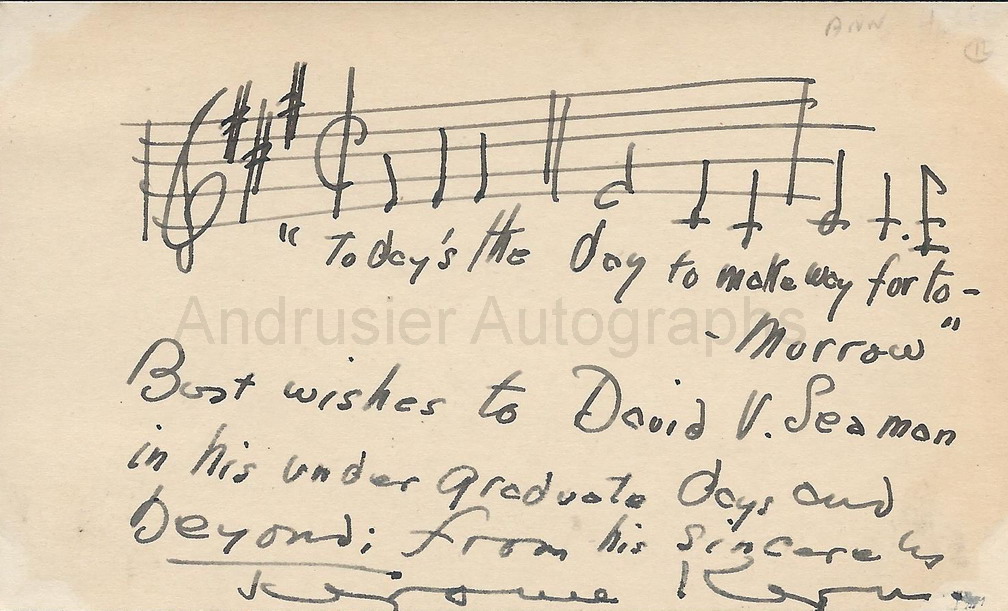 ANN
12
"Today's the Day to make way for to-
- Morrow"
Andrusier Autographs
Best wishes to David V. Seaman
in his under graduate days and
beyond; from his sincere
Jerome Kern